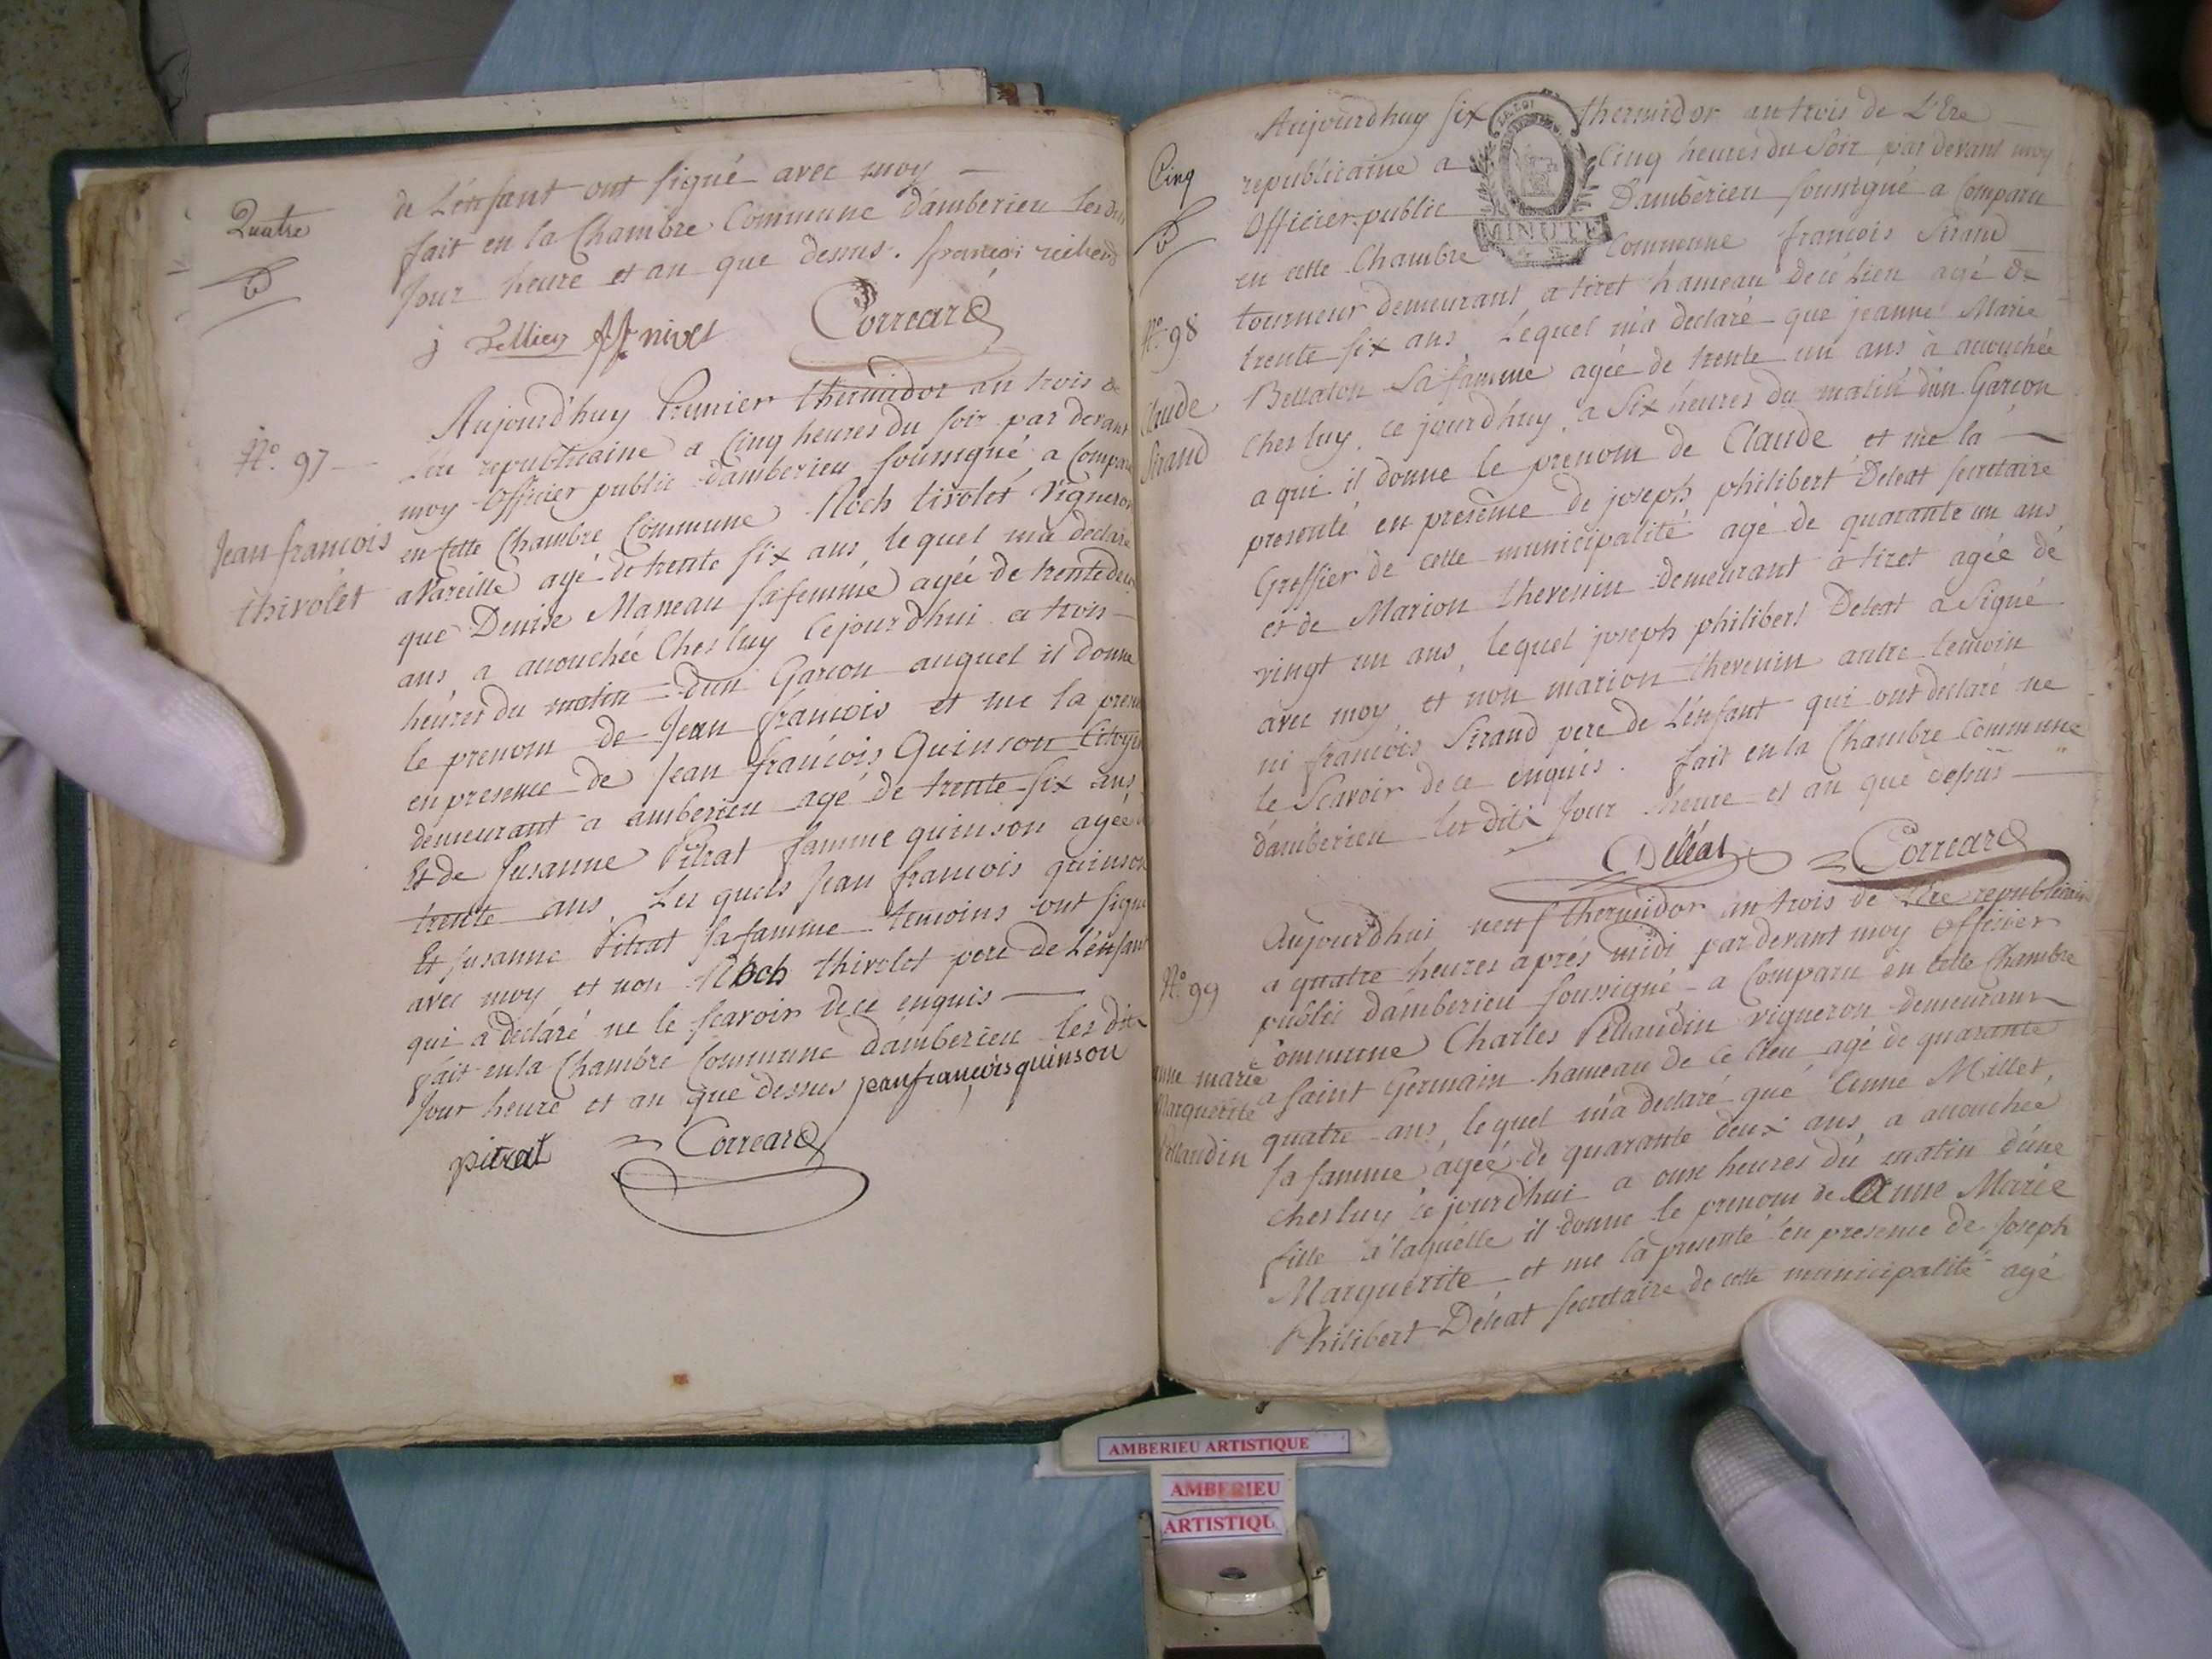 Quatre
de L'énfant ont signé avec moy —
fait en la Chambre Commune D'amberieu Les dits
Jour heure et an que dessus. françoi richerd
Correard
Aujourd'huy Premier thermidor an trois de
L'ere republicaine a Cinq heures du soir par devant
moy Officier public D'amberieu soussigné a Comparu
en Cette Chambre Commune Roch tivolet Vigneron
a Vareille agé de trente six ans, lequel m'a declaré
que Denise Maneau sa femme agée de trente deux
ans a acouchée Ches luy Cejourdhui a trois
heures du matin d'un Garcon auquel il donne
le prenom de Jean françois et me la presenté
en presence de Jean françois Quinson Citoyen
demeurant a amberieu agé de trente six ans
Et de Susanne Pitrat famme quinson agée de
trente ans. Les quels Jean francois quinson
Et susanne Pitrat sa famme temoins ont signé
avec moy et non Roch thivolet pere de L'énfant
qui a déclaré ne le scavoir de ce enquis —
fait en la Chambre Commune D'amberieu les dits
Jour heure et an que dessus jean françois quinson
pitrat Correard
N.° 97
Jean françois
thivolet
Cinq
Aujourdhuy six thermidor an trois de L'Ere
republicaine a Cinq heures du Soir par devant moy
Officier public D'ambérieu soussigné a Comparu
en cette Chambre Commune françois Sirand
tourneur demeurant a tiret hameau de ce lieu agé de
trente six ans, Lequel m'a declaré que jeanne Marie
Bellaton Sa famme agée de trente un ans à acouchée
Ches luy, ce jourdhuy, a Six heures du matin d'un Garcon
a qui il donne le prenom de Claude et me la
presenté en presence de joseph philibert Deleat secretaire
Greffier de cette municipalité agé de quarante un ans
et de Marion thevenin demeurant à tiret agée de
vingt un ans, lequel joseph philibert Deleat a Signé
avec moy, et non marion thevenin autre temoin
ni françois Sirand pere de L'enfant qui ont declaré ne
le Scavoir de ce enquis. fait en la Chambre Commune
d'ambérieu les dits Jour heure et an que dessus
Déléat Correard
MINUTE
N.° 98
Claude
Sirand
Aujourd'hui neuf thermidor an trois de L'Ere republicaine
a quatre heures aprés midi par devant moy Officier
public D'amberieu soussigné a Comparu en Cette Chambre
Commune Charles Pellaudin vigneron demeurant
a saint Germain hameau de ce lieu agé de quarante
quatre ans, lequel m'a declaré que Anne Millet,
sa famme agée de quarante deux ans, a acouchée
ches luy ce jourd'hui a onse heures du matin d'une
fille a laquelle il donne le prenom de Anne Marie
Marguerite et me la presenté en presence de Joseph
Philibert Déleat secretaire de cette municipalité agé
N.° 99
anne marie
Marguerite
Pellaudin
AMBERIEU ARTISTIQUE
AMBERIEU
ARTISTIQU